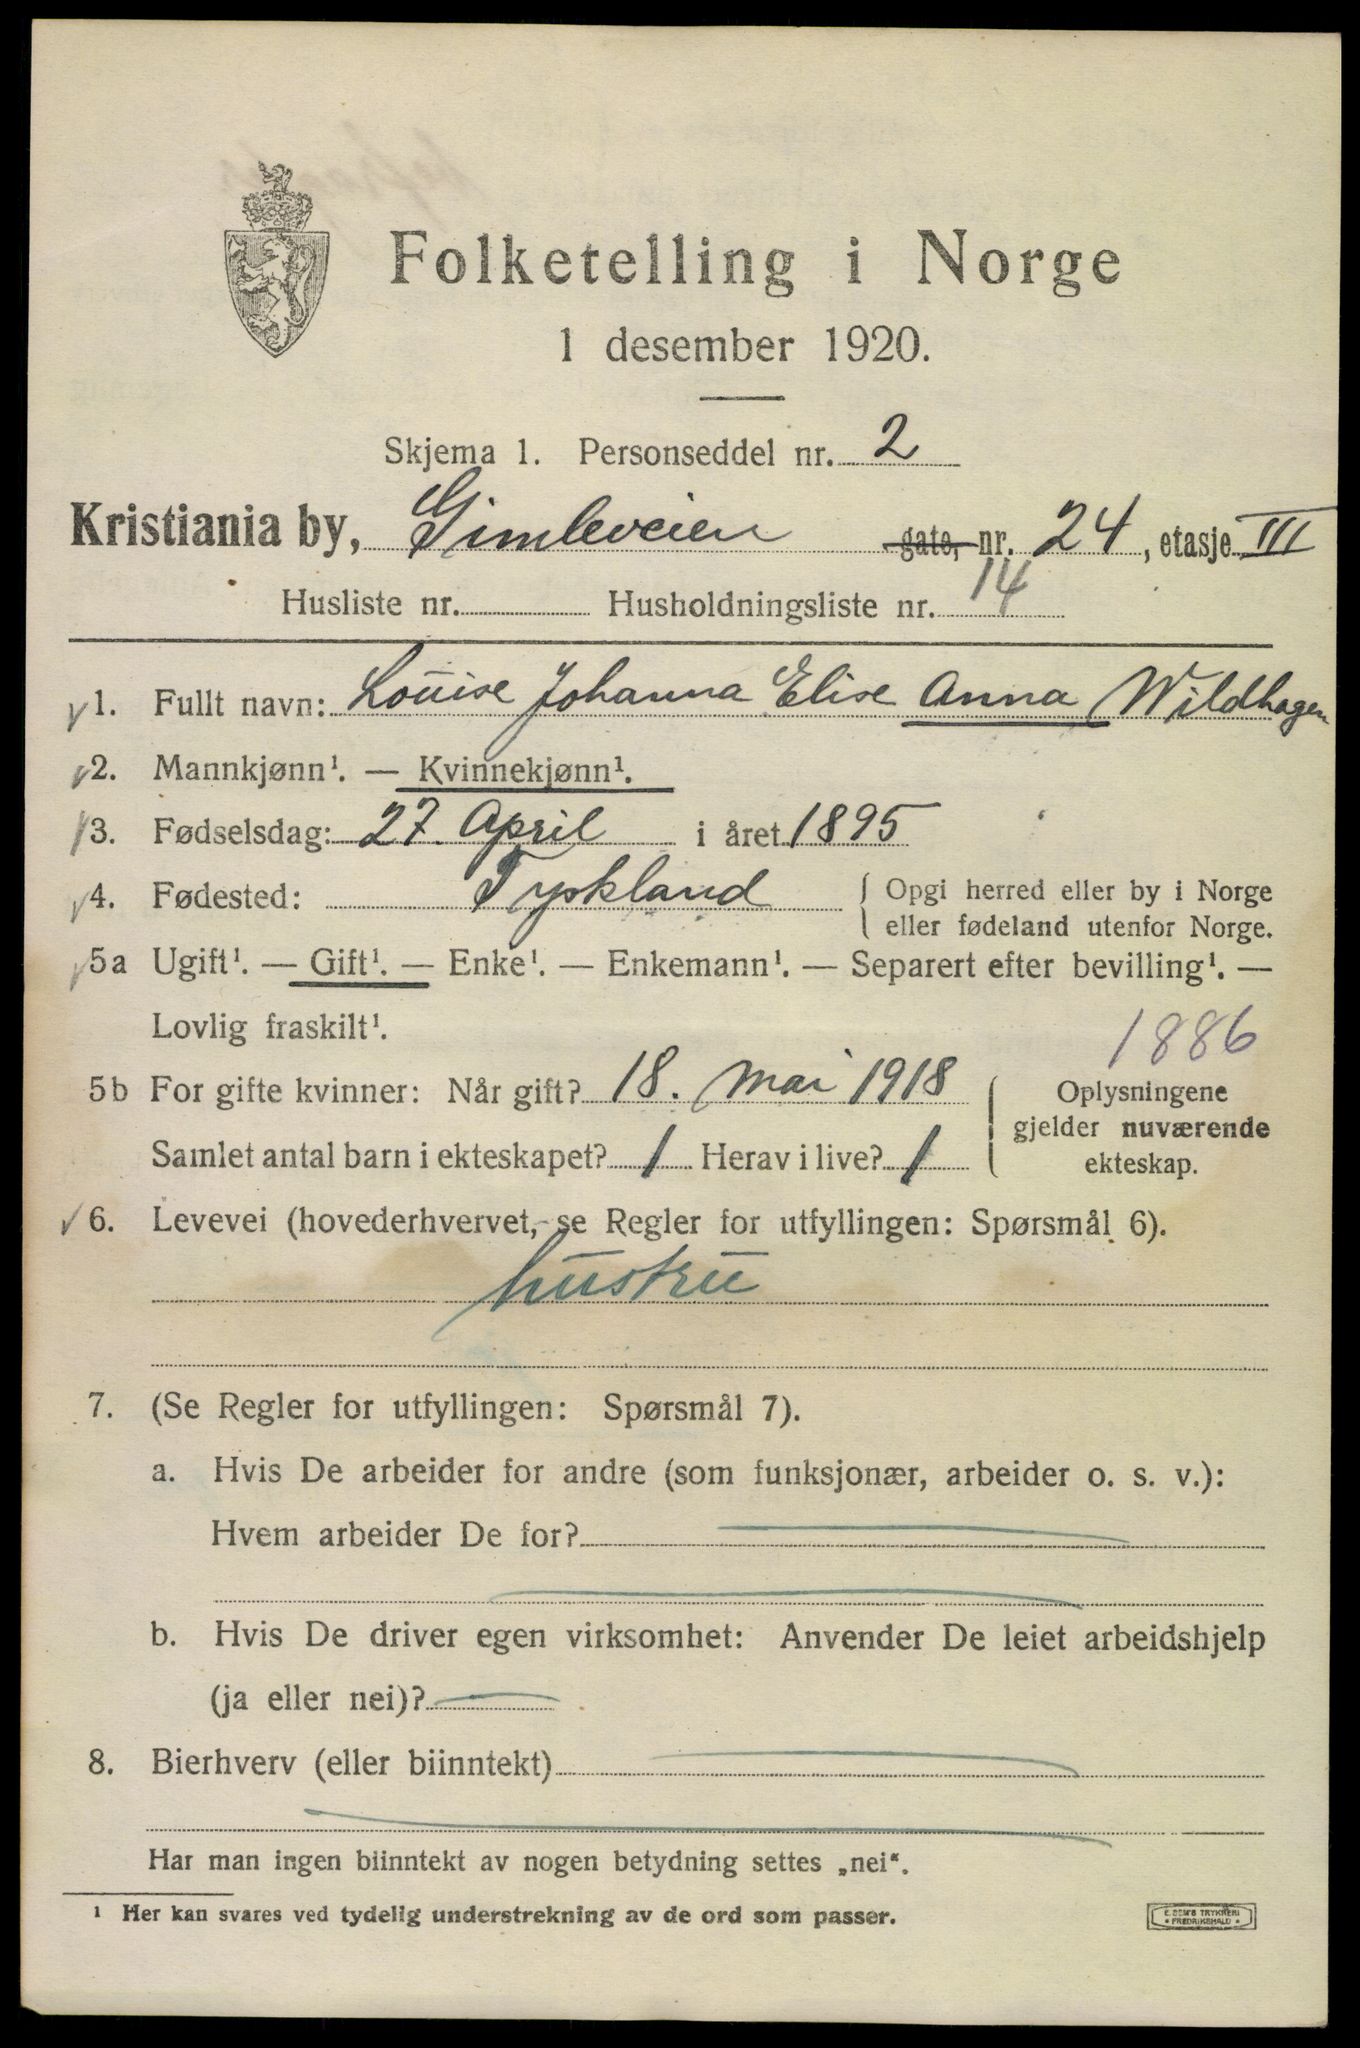 Folketelling i Norge
1 desember 1920.
Skjema 1. Personseddel nr. 2
Kristiania by, Gimleveien gate, nr. 24, etasje III
Husliste nr. Husholdningsliste nr. 14
1. Fullt navn: Louise Johanna Elise Anna Wildhagen
2. Mannkjønn¹. — Kvinnekjønn¹.
3. Fødselsdag: 27. April i året 1895
4. Fødested: Tyskland { Opgi herred eller by i Norge
eller fødeland utenfor Norge.
5a Ugift¹. — Gift¹. — Enke¹. — Enkemann¹. — Separert efter bevilling¹. —
Lovlig fraskilt¹.
1886
5b For gifte kvinner: Når gift? 18. Mai 1918 { Oplysningene
gjelder nuværende
Samlet antal barn i ekteskapet? 1 Herav i live? 1
ekteskap.
6. Levevei (hovederhvervet, se Regler for utfyllingen: Spørsmål 6).
hustru
7. (Se Regler for utfyllingen: Spørsmål 7).
a. Hvis De arbeider for andre (som funksjonær, arbeider o. s. v.):
Hvem arbeider De for?
b. Hvis De driver egen virksomhet: Anvender De leiet arbeidshjelp
(ja eller nei)?
8. Bierhverv (eller biinntekt)
Har man ingen biinntekt av nogen betydning settes „nei“.
¹ Her kan svares ved tydelig understrekning av de ord som passer.
E. SEM'S TRYKKERI
• FREDRIKSHALD •